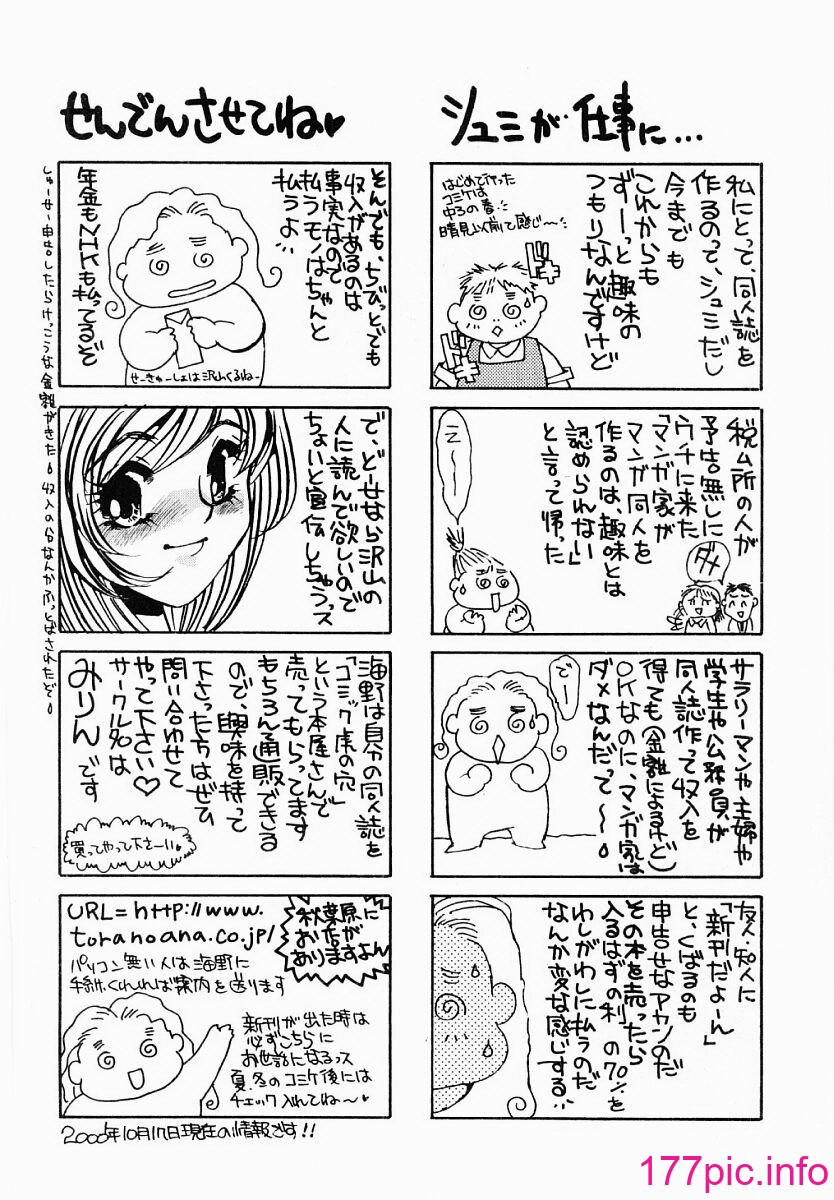 シュミが仕事に…
私にとって、同人誌を
作るのって、シュミだし
今までも
これからも
ずーっと趣味の
つもりなんですけど
はじめて行った
コミケは
中3の春
晴見以前て感じ〜
税ム所の人が
予告無しに
ウチに来た
「マンガ家が
マンガ同人を
作るのは、趣味とは
認められない」
と言って帰った
ダメ
サラリーマンや主婦や
学生や公務員が
同人誌作って収入を
得ても(金額によるけど)
OKなのに、マンガ家は
ダメなんだって〜
でー
友人・知人に
「新刊だよーん」
と、くばるのも
申告せなアカンのだ
その本を売ったら
入るはずの利の70%を
わしがわしに払うのだ
なんか変な感じする
せんでんさせてね♥
そんでも、ちびっとでも
収入があるのは
事実なので
払うモノはちゃんと
払うよ…
年金もNHKも払ってるぞ
せーきゅーしょは沢山くるねー
で、どーせなら沢山の
人に読んで欲しいので
ちょいと宣伝しちゃうっス
海野は自分の同人誌を
「コミック虎の穴」
という本屋さんで
売ってもらってます
もちろん通販できる
ので、興味を持って
下さった方はぜひ
問い合わせて
やって下さい♡
サークル名は
みりんです
買ってやって下さーい
URL=http://www.
toranoana.co.jp/
秋葉原に
お店が
ありますよん
パソコン無い人は海野に
手紙くれれば案内を送ります
新刊が出た時は
必ずこちらに
お世話になるっス
夏、冬のコミケ後には
チェック入れてね〜
2000年10月17日現在の情報です!!
しゅーせー申告したらけっこうな金額がきた 収入の分なんかふっとばされたぞ
177pic.info